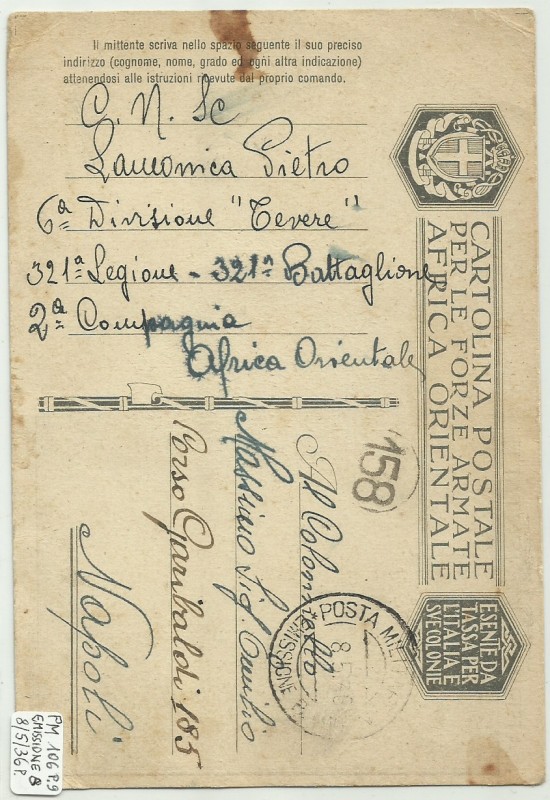 Il mittente scriva nello spazio seguente il suo preciso
indirizzo (cognome, nome, grado ed ogni altra indicazione)
attenendosi alle istruzioni ricevute dal proprio comando.
C. N. Sc
Pietro
6ª Divisione "Tevere"
321ª Legione - 321º Battaglione
2ª Compagnia
Africa Orientale
CARTOLINA POSTALE
PER LE FORZE ARMATE
AFRICA ORIENTALE
ESENTE DA
TASSA PER
L'ITALIA E
SVE COLONIE
158
Al
Massimo Sig.
Corso Garibaldi 185
Napoli
* POSTA MILITARE
EMISSIONE
8.5.
PM 106 P.9
EMISSIONE 8
8/5/36 P.